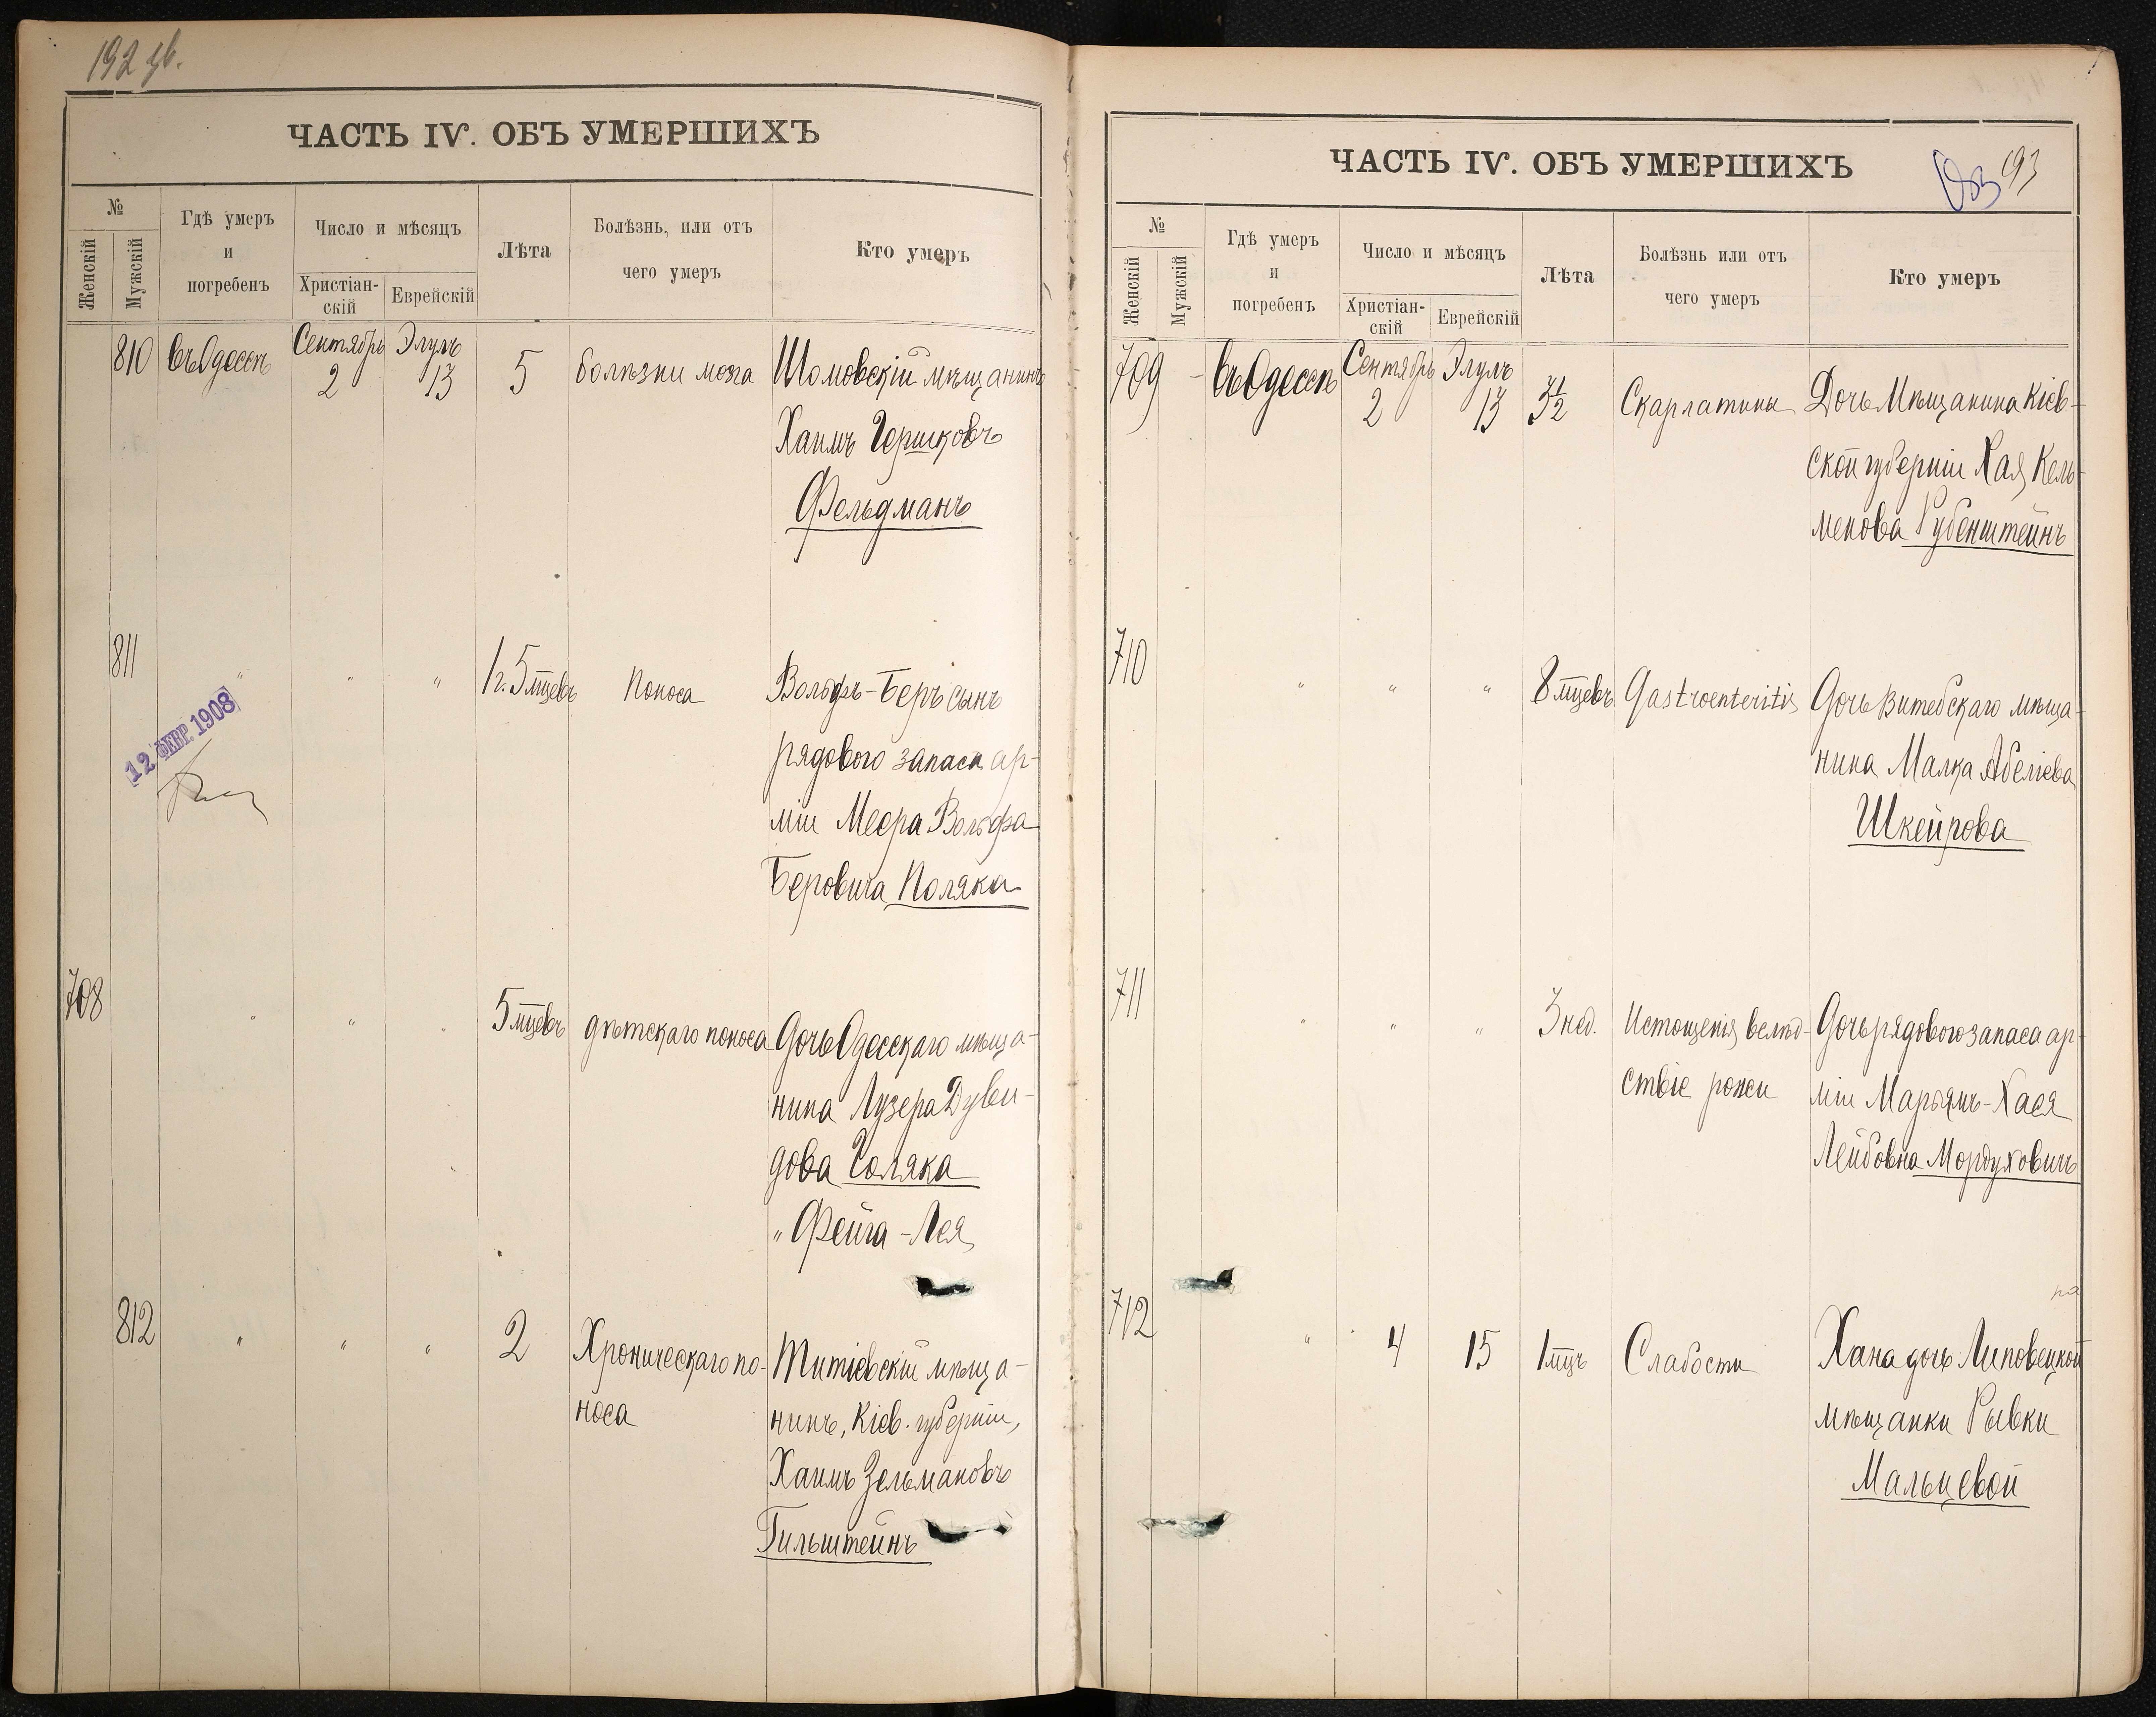 192
ЧАСТЬ IV. ОБЪ УМЕРШИХЪ
№
Женскій
Мужскій
Гдѣ умеръ
и
погребенъ
Число и мѣсяцъ
Христіан-
скій
Еврейскій
Лѣта
Болѣзнь, или отъ
чего умеръ
Кто умеръ
810 въ Одессѣ Сентябрь 2 Элулъ 13 5 болѣзни мозга мѣщанинъ
Хаимъ Гершковъ
Фельдманъ
811 " " " 1 г. 5 мцевъ Поноса Вольфъ-Беръ сынъ
рядового запаса ар-
міи Меера Вольфа
Беровича Поляка
12 ФЕВР. 1908
708 " " " 5 мцевъ дѣтскаго поноса Дочь Одесскаго мѣща-
нина Лузера Дуви-
дова Голяка
" Фейга-Лея
812 " " " 2 Хроническаго по-
носа
Титіевскій мѣща-
нинъ, Кіев. губерніи,
Хаимъ Зельмановъ
Гильштейнъ
193
ЧАСТЬ IV. ОБЪ УМЕРШИХЪ
№
Женскій
Мужскій
Гдѣ умеръ
и
погребенъ
Число и мѣсяцъ
Христіан-
скій
Еврейскій
Лѣта
Болѣзнь или отъ
чего умеръ
Кто умеръ
709 въ Одессѣ Сентябрь 2 Элулъ 13 3½ Скарлатины Дочь Мѣщанина Кіев-
ской губерніи Хая Кель-
менова Рубенштейнъ
710 " " " 8 мцевъ Gastroenteritis Дочь Витебскаго мѣща-
нина Малка Абеліева
Шкейрова
711 " " " 3 нед. Истощенія вслѣд-
ствіе рожи
Дочь рядового запаса ар-
міи Марьямъ-Хася
Лейбовна Мордуховичъ
712 " 4 15 1 мцъ Слабости Хана дочь Липовецкой
мѣщанки Рывки
Мальцевой